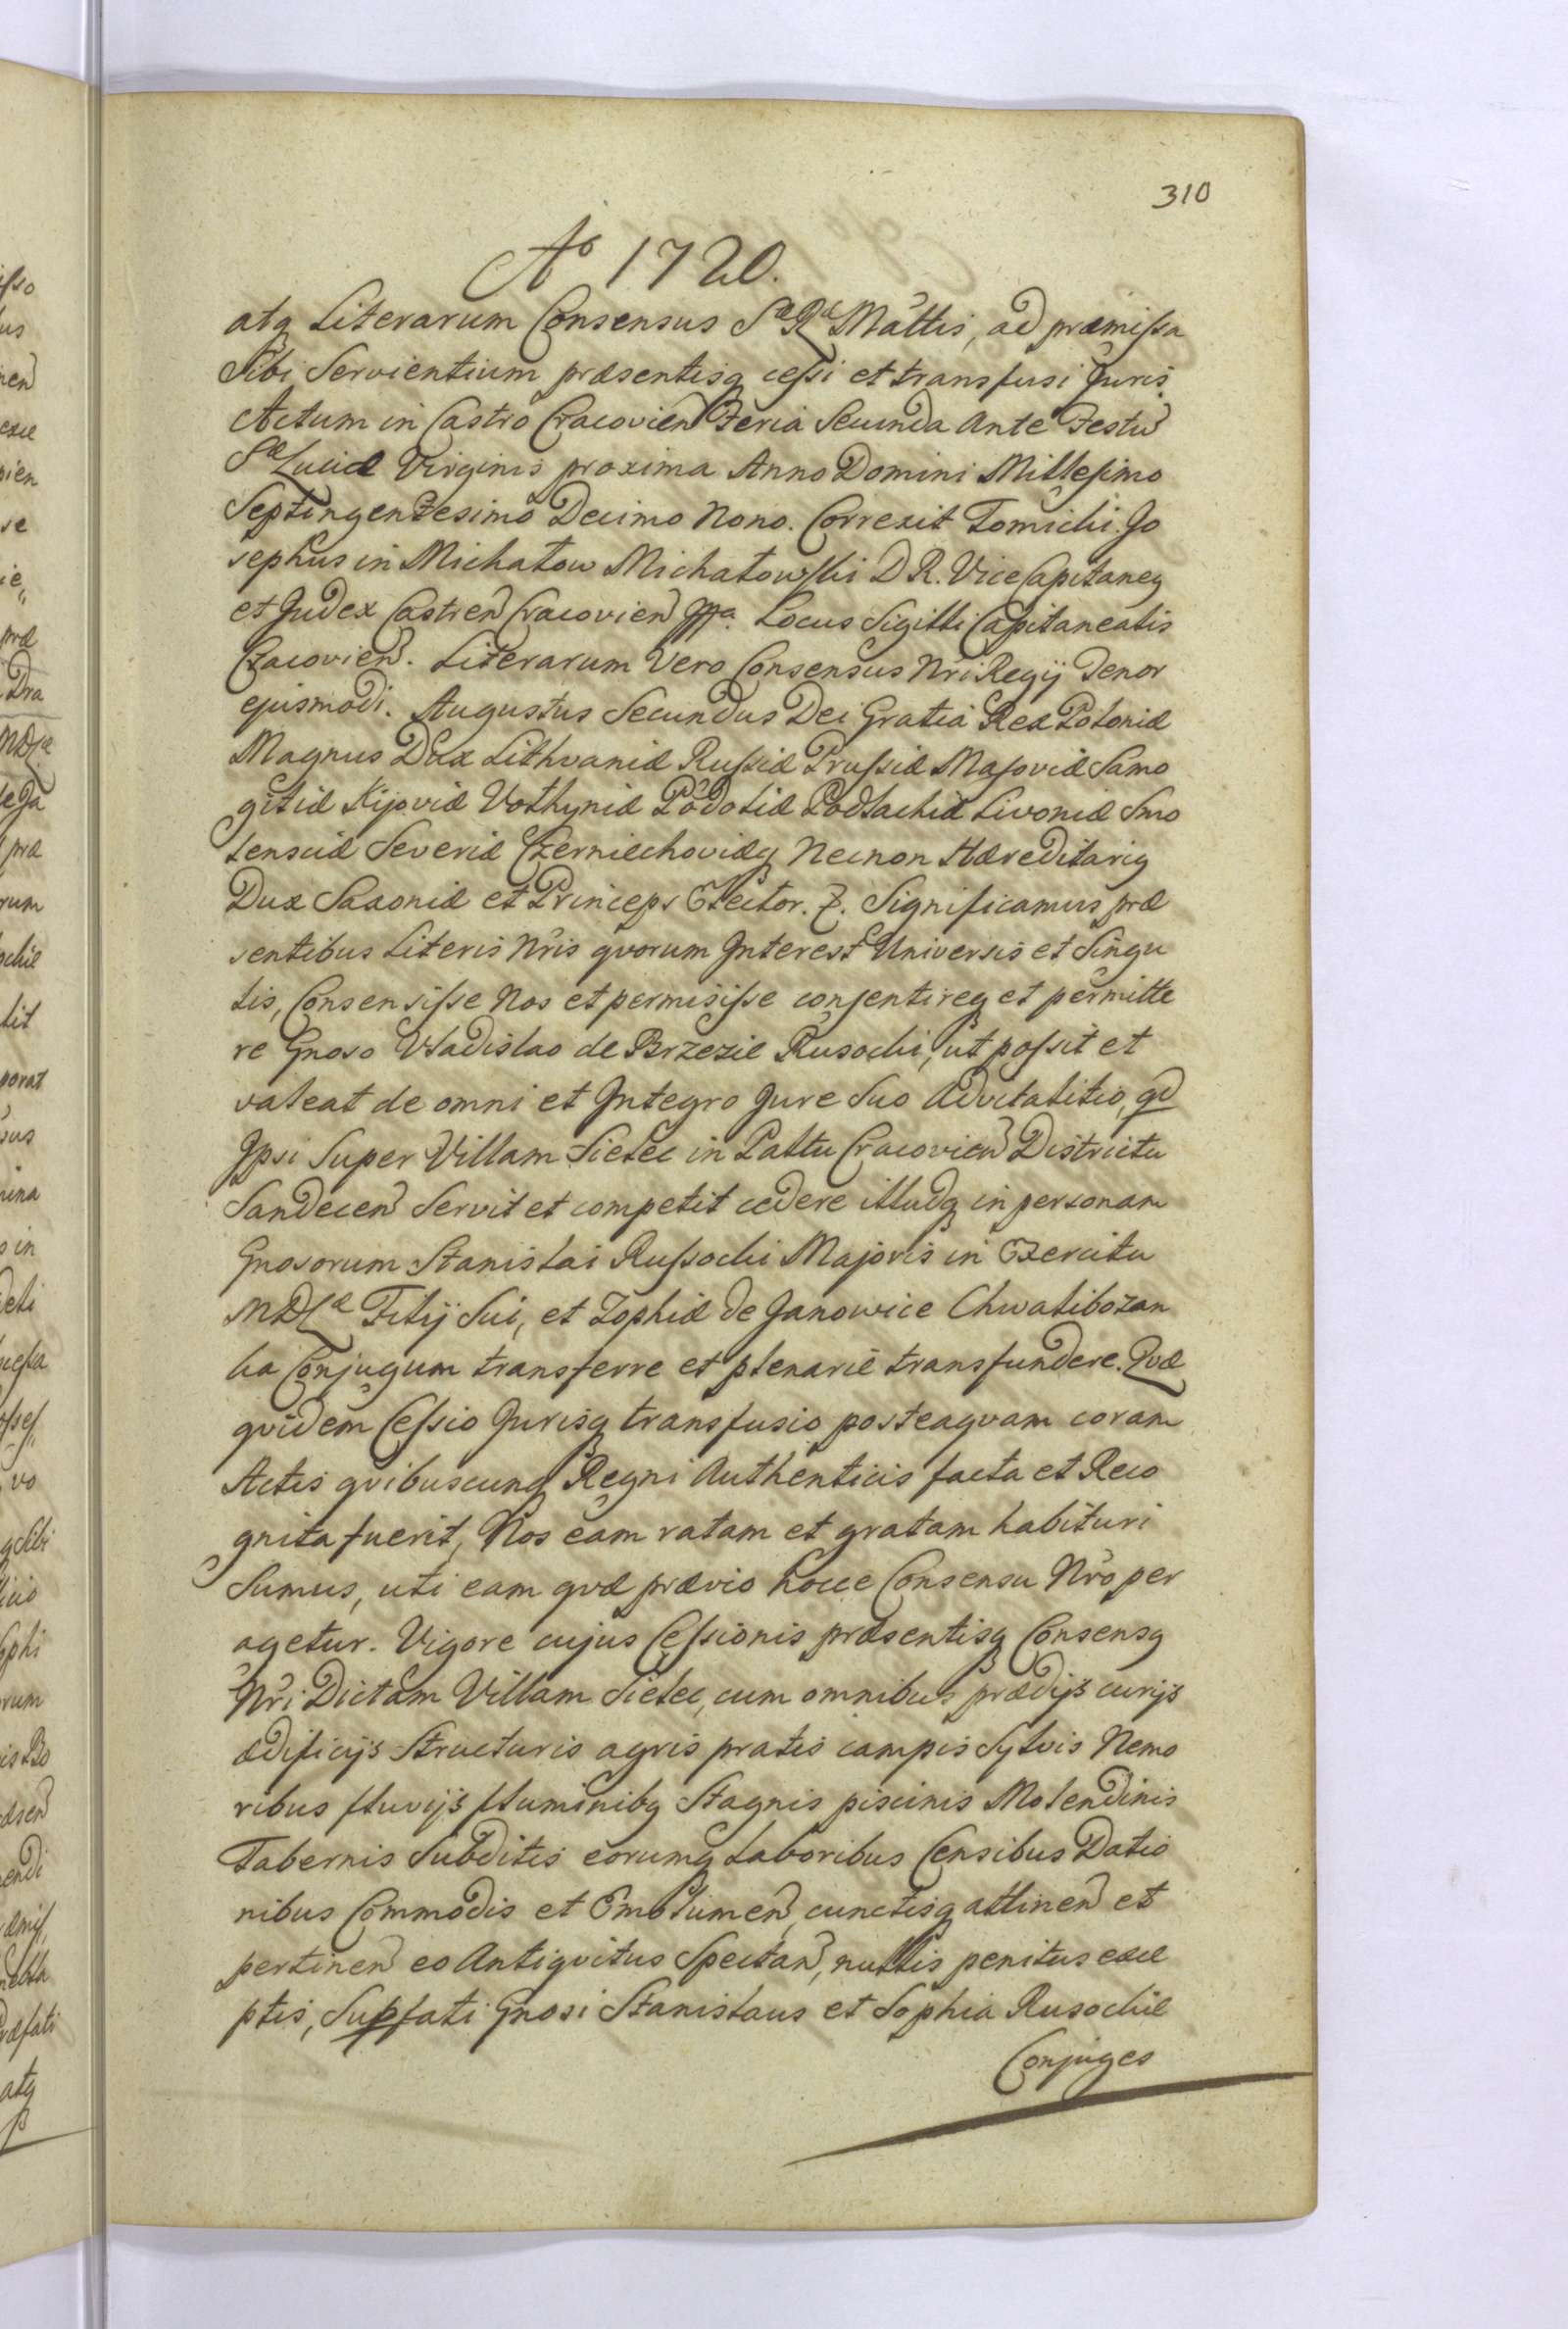 310
Aº 1720.
atq Literarum Consensus Sæ Ræ Mãttis, ad præmissa
Sibi Servientium præsentisq cessi et transfusi Juris.
Actum in Castro Cracovien Feria Secunda Ante Festu
Sæ Luciæ Virginis proxima Anno Domini Millesimo
Septingentesimo Decimo Nono. Correxit Tomicki. Jo
sephus in Michałow Michałowski D R. Vice Capitaneq
et Judex Castren Cracovien mppa. Locus Sigilli Capitanealis
Cracovien. Literarum Vero Consensus Nri Regij Tenor
ejusmodi. Augustus Secundus Dei Gratia Rex Poloniæ
Magnus Dux Lithvaniæ Russiæ Prussiæ Masoviæ Samo
gitiæ Kijoviæ Volhyniæ Podoliæ Podlachiæ Livoniæ Smo
lensciæ Severiæ Czerniechoviæq Necnon Hæreditariq
Dux Saxoniæ et Princeps Elector. Significamus præ
sentibus Literis Nris qvorum Interest Universis et Singu
lis, Consensisse Nos et permisisse consentireq et permitte
re Gnoso Vladislao de Brzezie Rusocki, ut possit et
valeat de omni et Integro Jure Suo Advitalitio, qd
Ipsi Super Villam Sielec in Pallu Cracovien Districtu
Sandecen Servit et competit cedere illudq in personam
Gnosorum Stanislai Russocki Majoris in Exercitu
MDLæ Filij Sui, et Zophiæ de Janowice Chwalibozan
ka Conjugum transferre et plenariè transfundere. Qvæ
qvidem Cessio Jurisq transfusio posteaqvam coram
Actis qvibuscunq Regni Authenticis facta et Reco
gnita fuerit, Nos eam ratam et gratam habituri
Sumus, uti eam qvæ prævio hocce Consensu Nro per
agetur. Vigore cujus Cessionis præsentisq Consensq
Nri Dictam Villam Sielec, cum omnibus prædijs curijs
ædificijs Structuris agris pratis campis Sylvis Nemo
ribus fluvijs fluminibq Stagnis piscinis Molendinis
Tabernis Subditis eorumq Laboribus Censibus Datio
nibus Commodis et Emolumen, cunctisq attinen et
pertinen eo Antiqvitus Spectan, nullis penitus exce
ptis, Supfati Gnosi Stanislaus et Sophia Rusockie
Conjuges